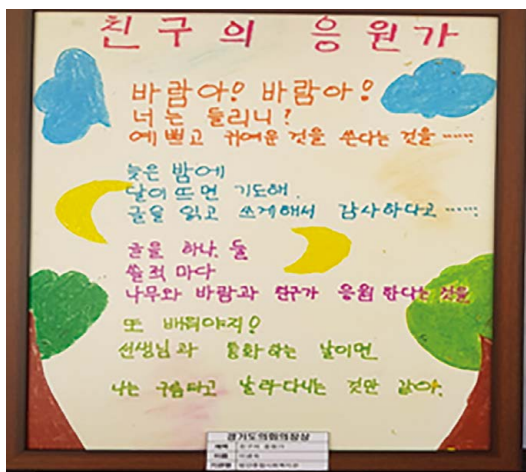 친구의 응원가
바람아! 바람아!
너는 들리니?
예쁘고 귀여운 것을 쓴다는 것을……
늦은 밤에
달이 뜨면 기도해.
글을 읽고 쓰게해서 감사하다고……
글을 하나, 둘
쓸적 마다
나무와 바람과 친구가 응원 한다는 것을
또 배워야지!
선생님과 통화하는 날이면
나는 구름타고 날라다니는 것만 같아.
경기도의회의장상
제목 친구의 응원가
이름
기관명